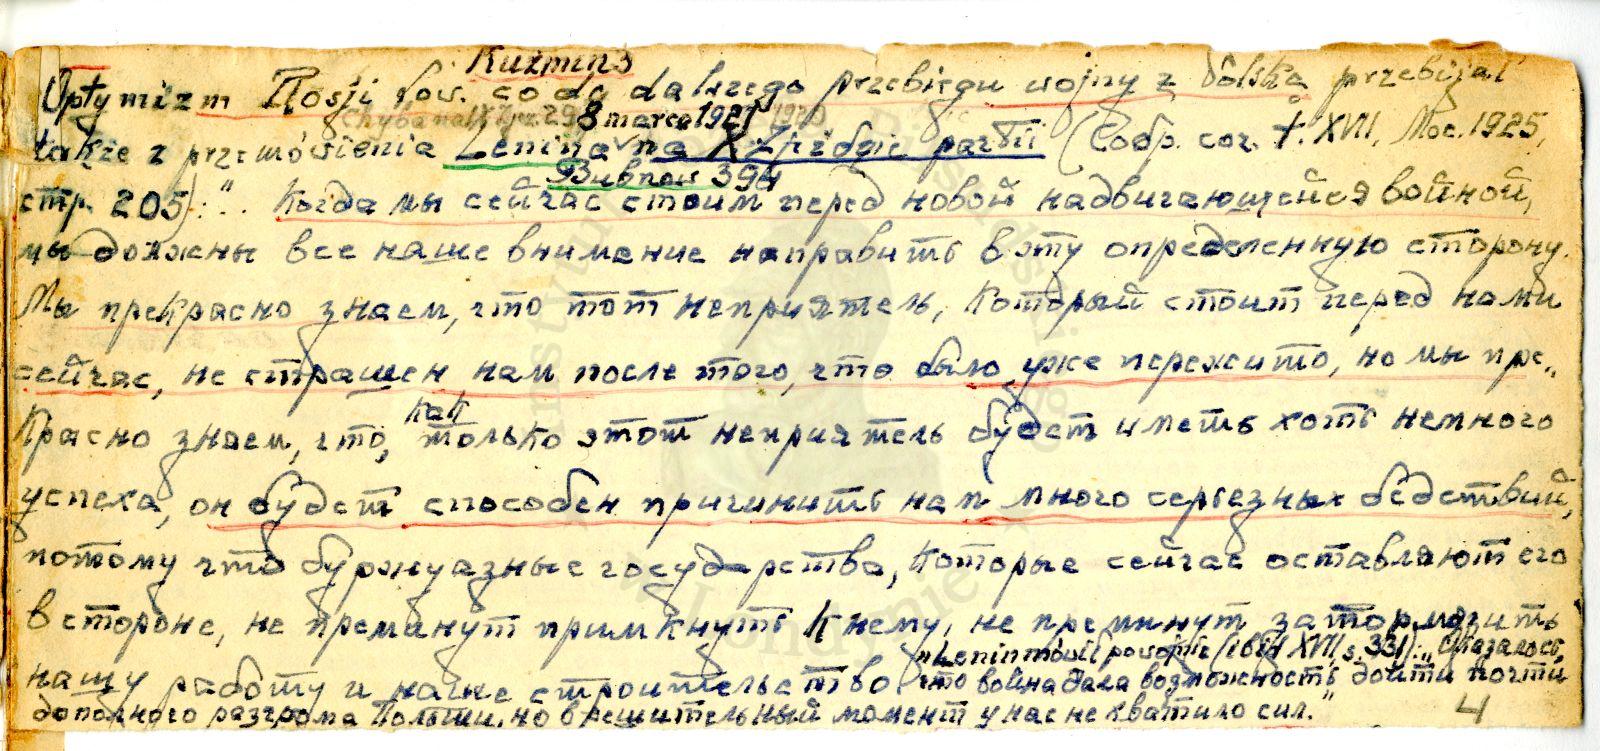 Kuźmin 3
Optymizm Rosji sow. co do dalszego przebiegu wojny z Polską przebijał
8 marca 1921
także z przemówienia Lenina na X Zjeździe partii (Собр. соч. т. XVII, Мос. 1925,
Bubnow 394
стр. 205): "... Когда мы сейчас стоим перед новой надвигающейся войной,
мы должны все наше внимание направить в эту определенную сторону.
Мы прекрасно знаем, что тот неприятель, который стоит перед нами
сейчас, не страшен нам после того, что было уже пережито, но мы пре„
красно знаем, что, как только этот неприятель будет иметь хоть немного
успеха, он будет способен причинить нам много серьезных бедствий,
потому что буржуазные государства, которые сейчас оставляют его
в стороне, не преминут примкнуть к нему, не преминут затормозить
нашу работу и наше строительство.
Lenin mówił (ibid XVII, s. 331): „Оказалось,
что война дала возможность дойти почти
до полного разгрома Польши, но в решительный момент у нас не хватило сил."
4
Instytut Piłsudskiego
w Londynie